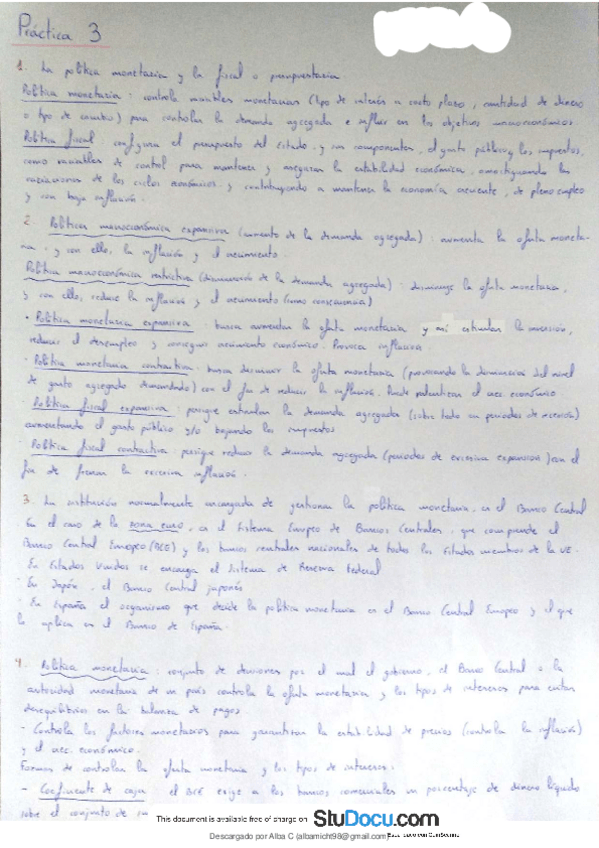 Práctica 3
1. La política monetaria y la fiscal o presupuestaria.
Política monetaria: controla variables monetarias (tipo de interés a corto plazo, cantidad de dinero
o tipo de cambio) para controlar la demanda agregada e influir en los objetivos macroeconómicos.
Política fiscal: configura el presupuesto del Estado, y sus componentes, el gasto público y los impuestos,
como variables de control para mantener y asegurar la estabilidad económica, amortiguando las
variaciones de los ciclos económicos, y contribuyendo a mantener la economía creciente, de pleno empleo
y con baja inflación.
2. Política macroeconómica expansiva (aumento de la demanda agregada): aumenta la oferta moneta-
ria, y con ello, la inflación y el crecimiento.
Política macroeconómica restrictiva (disminución de la demanda agregada): disminuye la oferta monetaria,
y con ello, reduce la inflación y el crecimiento (como consecuencia)
· Política monetaria expansiva: busca aumentar la oferta monetaria y así estimular la inversión,
reducir el desempleo y conseguir crecimiento económico. Provoca inflación.
· Política monetaria contractiva: busca disminuir la oferta monetaria (provocando la disminución del nivel
de gasto agregado demandado) con el fin de reducir la inflación. Puede ralentizar el crec. económico.
· Política fiscal expansiva: persigue estimular la demanda agregada (sobre todo en periodos de recesión)
aumentando el gasto público y/o bajando los impuestos
· Política fiscal contractiva: persigue reducir la demanda agregada (periodos de excesiva expansión) con el
fin de frenar la excesiva inflación.
3. La institución normalmente encargada de gestionar la política monetaria, es el Banco Central
En el caso de la zona euro, es el Sistema Europeo de Bancos Centrales, que comprende el
Banco Central Europeo (BCE) y los bancos centrales nacionales de todos los Estados miembros de la UE.
- En Estados Unidos se encarga el Sistema de Reserva Federal
- En Japón, el Banco Central japonés
- En España el organismo que decide la política monetaria es el Banco Central Europeo y el que
la aplica es el Banco de España.
4. Política monetaria: conjunto de decisiones por el cual el gobierno, el Banco Central o la
autoridad monetaria de un país controla la oferta monetaria y los tipos de intereses para evitar
desequilibrios en la balanza de pagos.
- Controla los factores monetarios para garantizar la estabilidad de precios (controla la inflación)
y el crec. económico.
Formas de controlar la oferta monetaria y los tipos de intereses:
- Coeficiente de caja: el BCE exige a los bancos comerciales un porcentaje de dinero líquido
sobre el conjunto de su
This document is available free of charge on StuDocu.com
Descargado por Alba C (albamicht98@gmail.com)